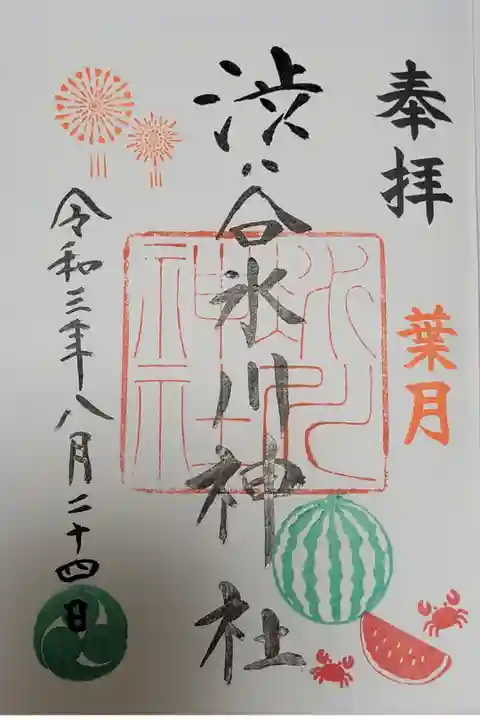 奉拝
葉月
渋谷氷川神社
氷川神社
令和三年八月二十四日